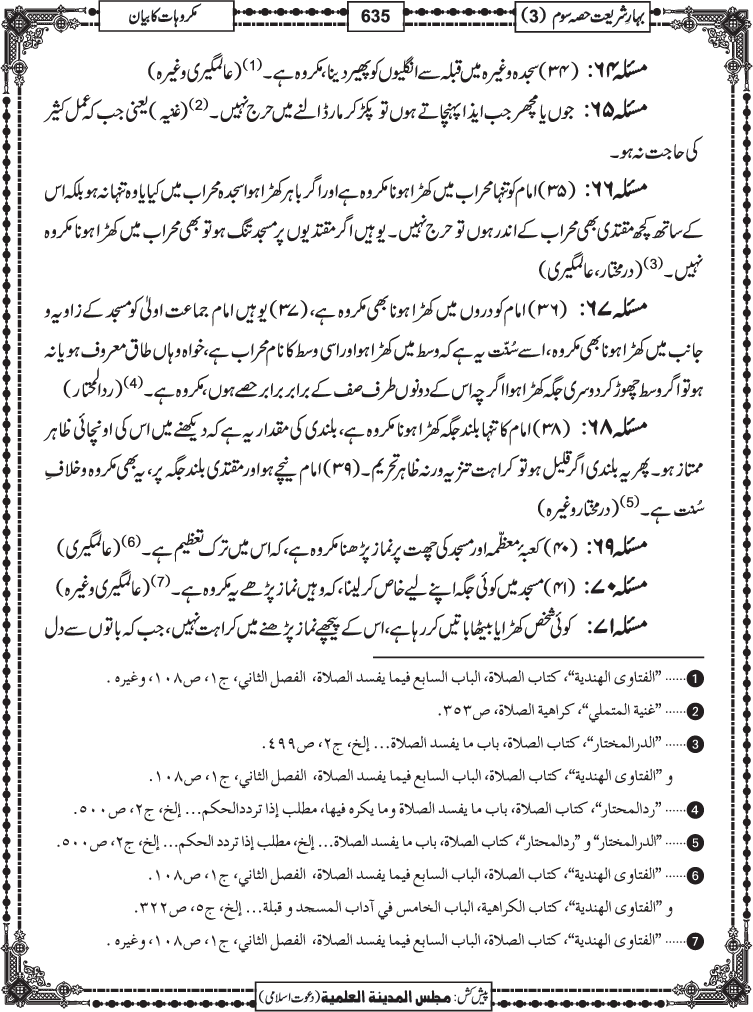 بہار شریعت حصہ سوم (3)
635
مکروہات کا بیان
مسئلہ ۶۴: (۳۴) سجدہ وغیرہ میں قبلہ سے انگلیوں کو پھیر دینا، مکروہ ہے۔(1) (عالمگیری وغیرہ)
مسئلہ ۶۵: جوں یا مچھر جب ایذا پہنچاتے ہوں تو پکڑ کر مار ڈالنے میں حرج نہیں۔(2) (غنیہ) یعنی جب کہ عمل کثیر
کی حاجت نہ ہو۔
مسئلہ ۶۶: (۳۵) امام کو تنہا محراب میں کھڑا ہونا مکروہ ہے اور اگر باہر کھڑا ہوا سجدہ محراب میں کیا یا وہ تنہا نہ ہو بلکہ اس
کے ساتھ کچھ مقتدی بھی محراب کے اندر ہوں تو حرج نہیں۔ یوہیں اگر مقتدیوں پر مسجد تنگ ہو تو بھی محراب میں کھڑا ہونا مکروہ
نہیں۔(3) (درمختار، عالمگیری)
مسئلہ ۶۷: (۳۶) امام کو دروں میں کھڑا ہونا بھی مکروہ ہے، (۳۷) یوہیں امام جماعت اولیٰ کو مسجد کے زاویہ و
جانب میں کھڑا ہونا بھی مکروہ، اسے سُنّت یہ ہے کہ وسط میں کھڑا ہو اور اسی وسط کا نام محراب ہے، خواہ وہاں طاق معروف ہو یا نہ
ہو تو اگر وسط چھوڑ کر دوسری جگہ کھڑا ہوا اگرچہ اس کے دونوں طرف صف کے برابر برابر حصے ہوں، مکروہ ہے۔(4) (ردالمحتار)
مسئلہ ۶۸: (۳۸) امام کا تنہا بلند جگہ کھڑا ہونا مکروہ ہے، بلندی کی مقدار یہ ہے کہ دیکھنے میں اس کی اونچائی ظاہر
ممتاز ہو۔ پھر یہ بلندی اگر قلیل ہو تو کراہت تنزیہ ورنہ ظاہر تحریم۔ (۳۹) امام نیچے ہو اور مقتدی بلند جگہ پر، یہ بھی مکروہ و خلافِ
سُنت ہے۔(5) (درمختار وغیرہ)
مسئلہ ۶۹: (۴۰) کعبۂ معظّمہ اور مسجد کی چھت پر نماز پڑھنا مکروہ ہے، کہ اس میں ترک تعظیم ہے۔(6) (عالمگیری)
مسئلہ ۷۰: (۴۱) مسجد میں کوئی جگہ اپنے لیے خاص کر لینا، کہ وہیں نماز پڑھے یہ مکروہ ہے۔(7) (عالمگیری وغیرہ)
مسئلہ ۷۱: کوئی شخص کھڑا یا بیٹھا باتیں کر رہا ہے، اس کے پیچھے نماز پڑھنے میں کراہت نہیں، جب کہ باتوں سے دل
1 ...... ”الفتاوی الھندیة“، کتاب الصلاة، الباب السابع فیما یفسد الصلاة، الفصل الثاني، ج۱، ص۱۰۸، وغیرہ .
2 ...... ”غنیة المتملي“، کراھیة الصلاة، ص۳۵۳.
3 ...... ”الدرالمختار“، کتاب الصلاة، باب ما یفسد الصلاة... إلخ، ج۲، ص٤٩٩.
و ”الفتاوی الھندیة“، کتاب الصلاة، الباب السابع فیما یفسد الصلاة، الفصل الثاني، ج۱، ص۱۰۸.
4 ...... ”ردالمحتار“، کتاب الصلاة، باب ما یفسد الصلاة وما یکرہ فیھا، مطلب إذا ترددالحکم... إلخ، ج۲، ص۵۰۰.
5 ...... ”الدرالمختار“ و ”ردالمحتار“، کتاب الصلاة، باب ما یفسد الصلاة... إلخ، مطلب إذا تردد الحکم... إلخ، ج۲، ص۵۰۰.
6 ...... ”الفتاوی الھندیة“، کتاب الصلاة، الباب السابع فیما یفسد الصلاة، الفصل الثاني، ج۱، ص۱۰۸.
و ”الفتاوی الھندیة“، کتاب الکراھیة، الباب الخامس في آداب المسجد و قبلة... إلخ، ج۵، ص۳۲۲.
7 ...... ”الفتاوی الھندیة“، کتاب الصلاة، الباب السابع فیما یفسد الصلاة، الفصل الثاني، ج۱، ص۱۰۸، وغیرہ .
پیش کش: مجلس المدینة العلمیة (دعوت اسلامی)